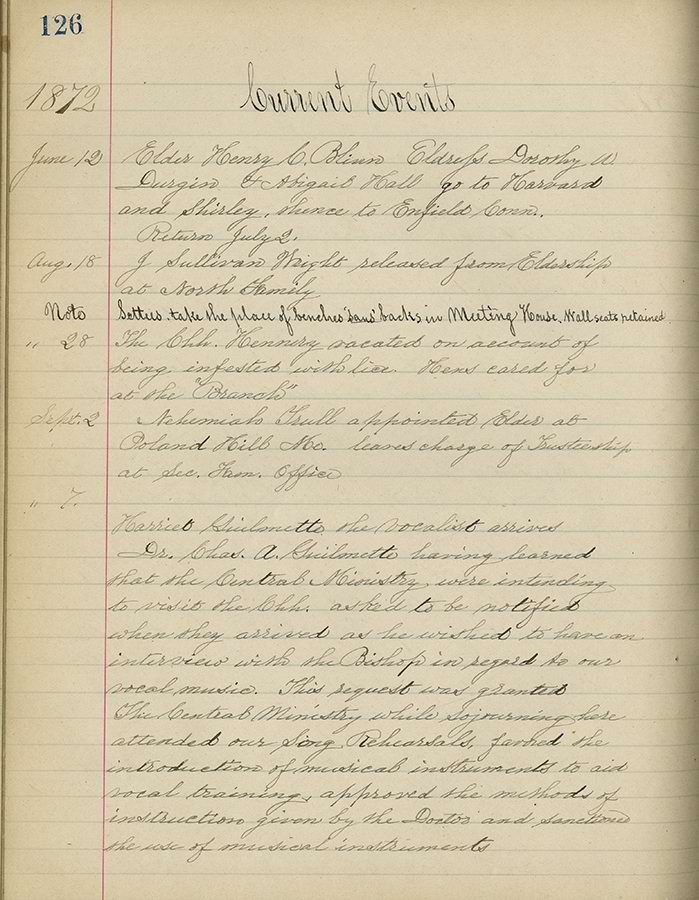 126
1872 Current Events
June 12 Elder Henry C. Blinn Eldress Dorothy A
Durgin & Abigail Hall go to Harvard
and Shirley, thence to Enfield Conn.
Return July 2.
Aug. 18 J Sullivan Wright released from Eldership
at North Family
Note Settees take the place of benches "sans" backs in Meeting House. Wall seats retained
" 28 The Chh. Hennery vacated on account of
being infested with lice. Hens cared for
at the "Branch"
Sept. 2 Nehemiah Trull appointed Elder at
Poland Hill Me. leaves charge of Trusteeship
at Sec. Fam. Office
" 7.
Harriet Guilmette the vocalist arrives
Dr. Chas. A. Guilmette having learned
that the Central Ministry were intending
to visit the Chh. asked to be notified
when they arrived as he wished to have an
interview with the Bishop in regard to our
vocal music. This request was granted
The Central Ministry while sojourning here
attended our Song Rehearsals, favored the
introduction of musical instruments to aid
vocal training, approved the methods of
instruction given by the Doctor and sanctioned
the use of musical instruments